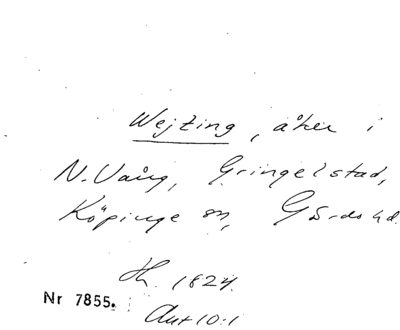 Wejting, åker i
N. Vång, Gringelstad,
Köpinge sn, Gärds hd.
Th. 1824.
Nr 7855. Akt 10:1